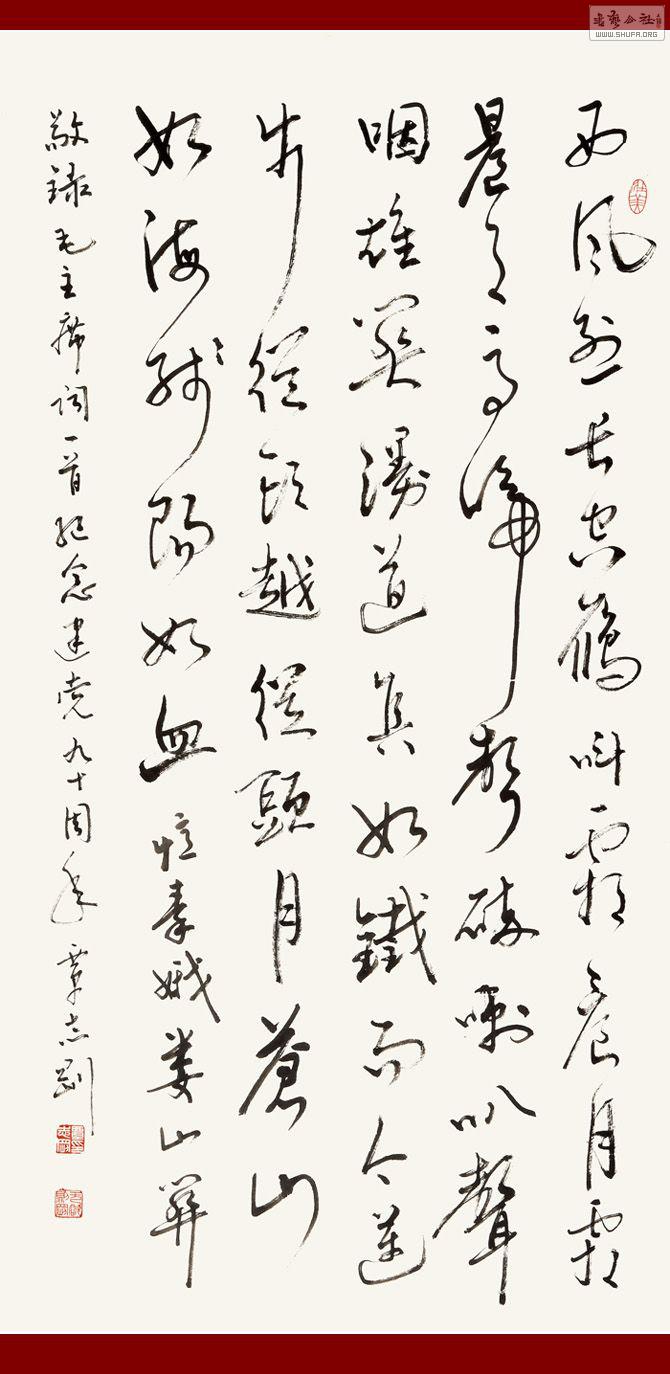 西風烈長空鴈叫霜晨月霜
晨月馬蹄聲碎喇叭聲
咽雄関漫道真如鐵而今邁
步從頭越從頭月蒼山
如海殘陽如血 憶秦娥婁山関
敬録毛主席詞一首紀念建党九十周年 覃志剛
WWW.SHUFA.ORG